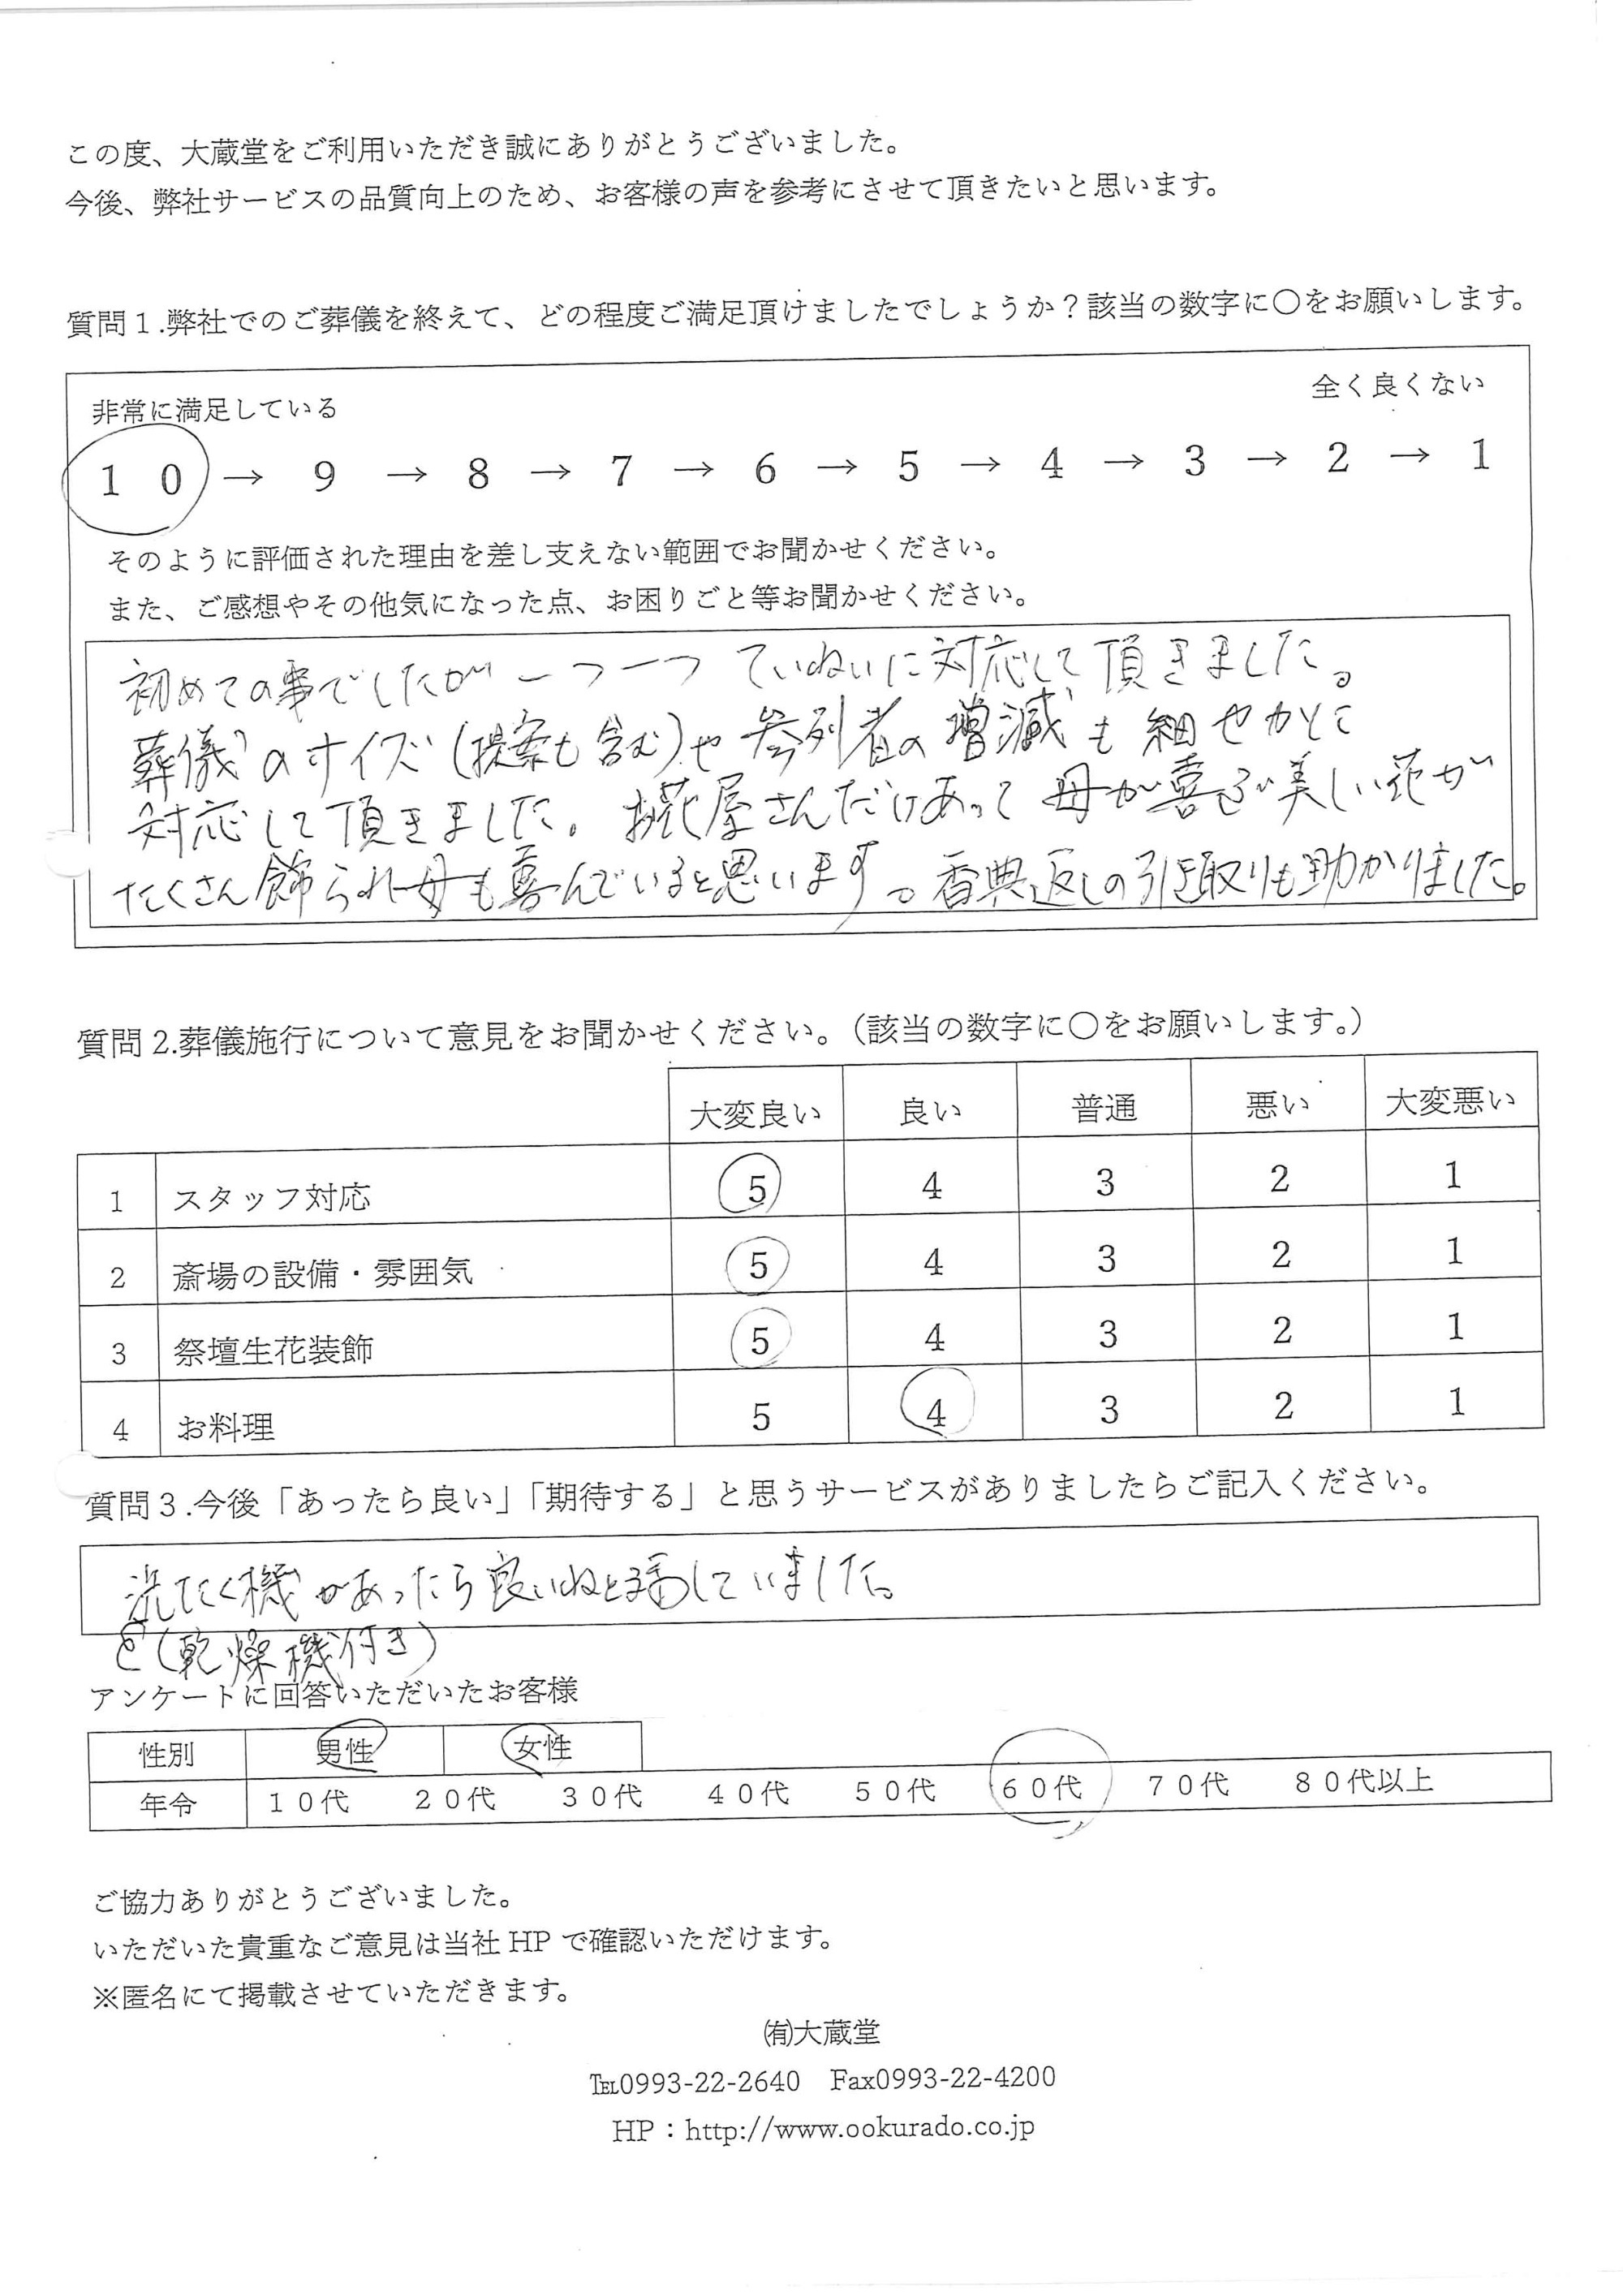 この度、大蔵堂をご利用いただき誠にありがとうございました。
今後、弊社サービスの品質向上のため、お客様の声を参考にさせて頂きたいと思います。
質問１.弊社でのご葬儀を終えて、どの程度ご満足頂けましたでしょうか？該当の数字に〇をお願いします。
非常に満足している 全く良くない
１０ → ９ → ８ → ７ → ６ → ５ → ４ → ３ → ２ → １
そのように評価された理由を差し支えない範囲でお聞かせください。
また、ご感想やその他気になった点、お困りごと等お聞かせください。
初めての事でしたが一つ一つ ていねいに対応して頂きました。
葬儀のサイズ（提案も含む）や 参列者の増減も細やかに
対応して頂きました。お花屋さんだけあって 母が喜ぶ美しい花が
たくさん飾られ母も喜んでいると思います。香典返しの引き取りも助かりました。
質問２.葬儀施行について意見をお聞かせください。（該当の数字に〇をお願いします。）
大変良い 良い 普通 悪い 大変悪い
1 スタッフ対応 5 4 3 2 1
2 斎場の設備・雰囲気 5 4 3 2 1
3 祭壇生花装飾 5 4 3 2 1
4 お料理 5 4 3 2 1
質問３.今後「あったら良い」「期待する」と思うサービスがありましたらご記入ください。
洗たく機があったら良いねと話していました。
（乾燥機付き）
アンケートに回答いただいたお客様
性別 男性 女性
年令 １０代 ２０代 ３０代 ４０代 ５０代 ６０代 ７０代 ８０代以上
ご協力ありがとうございました。
いただいた貴重なご意見は当社 HP で確認いただけます。
※匿名にて掲載させていただきます。
㈲大蔵堂
℡0993-22-2640 Fax0993-22-4200
HP：http://www.ookurado.co.jp